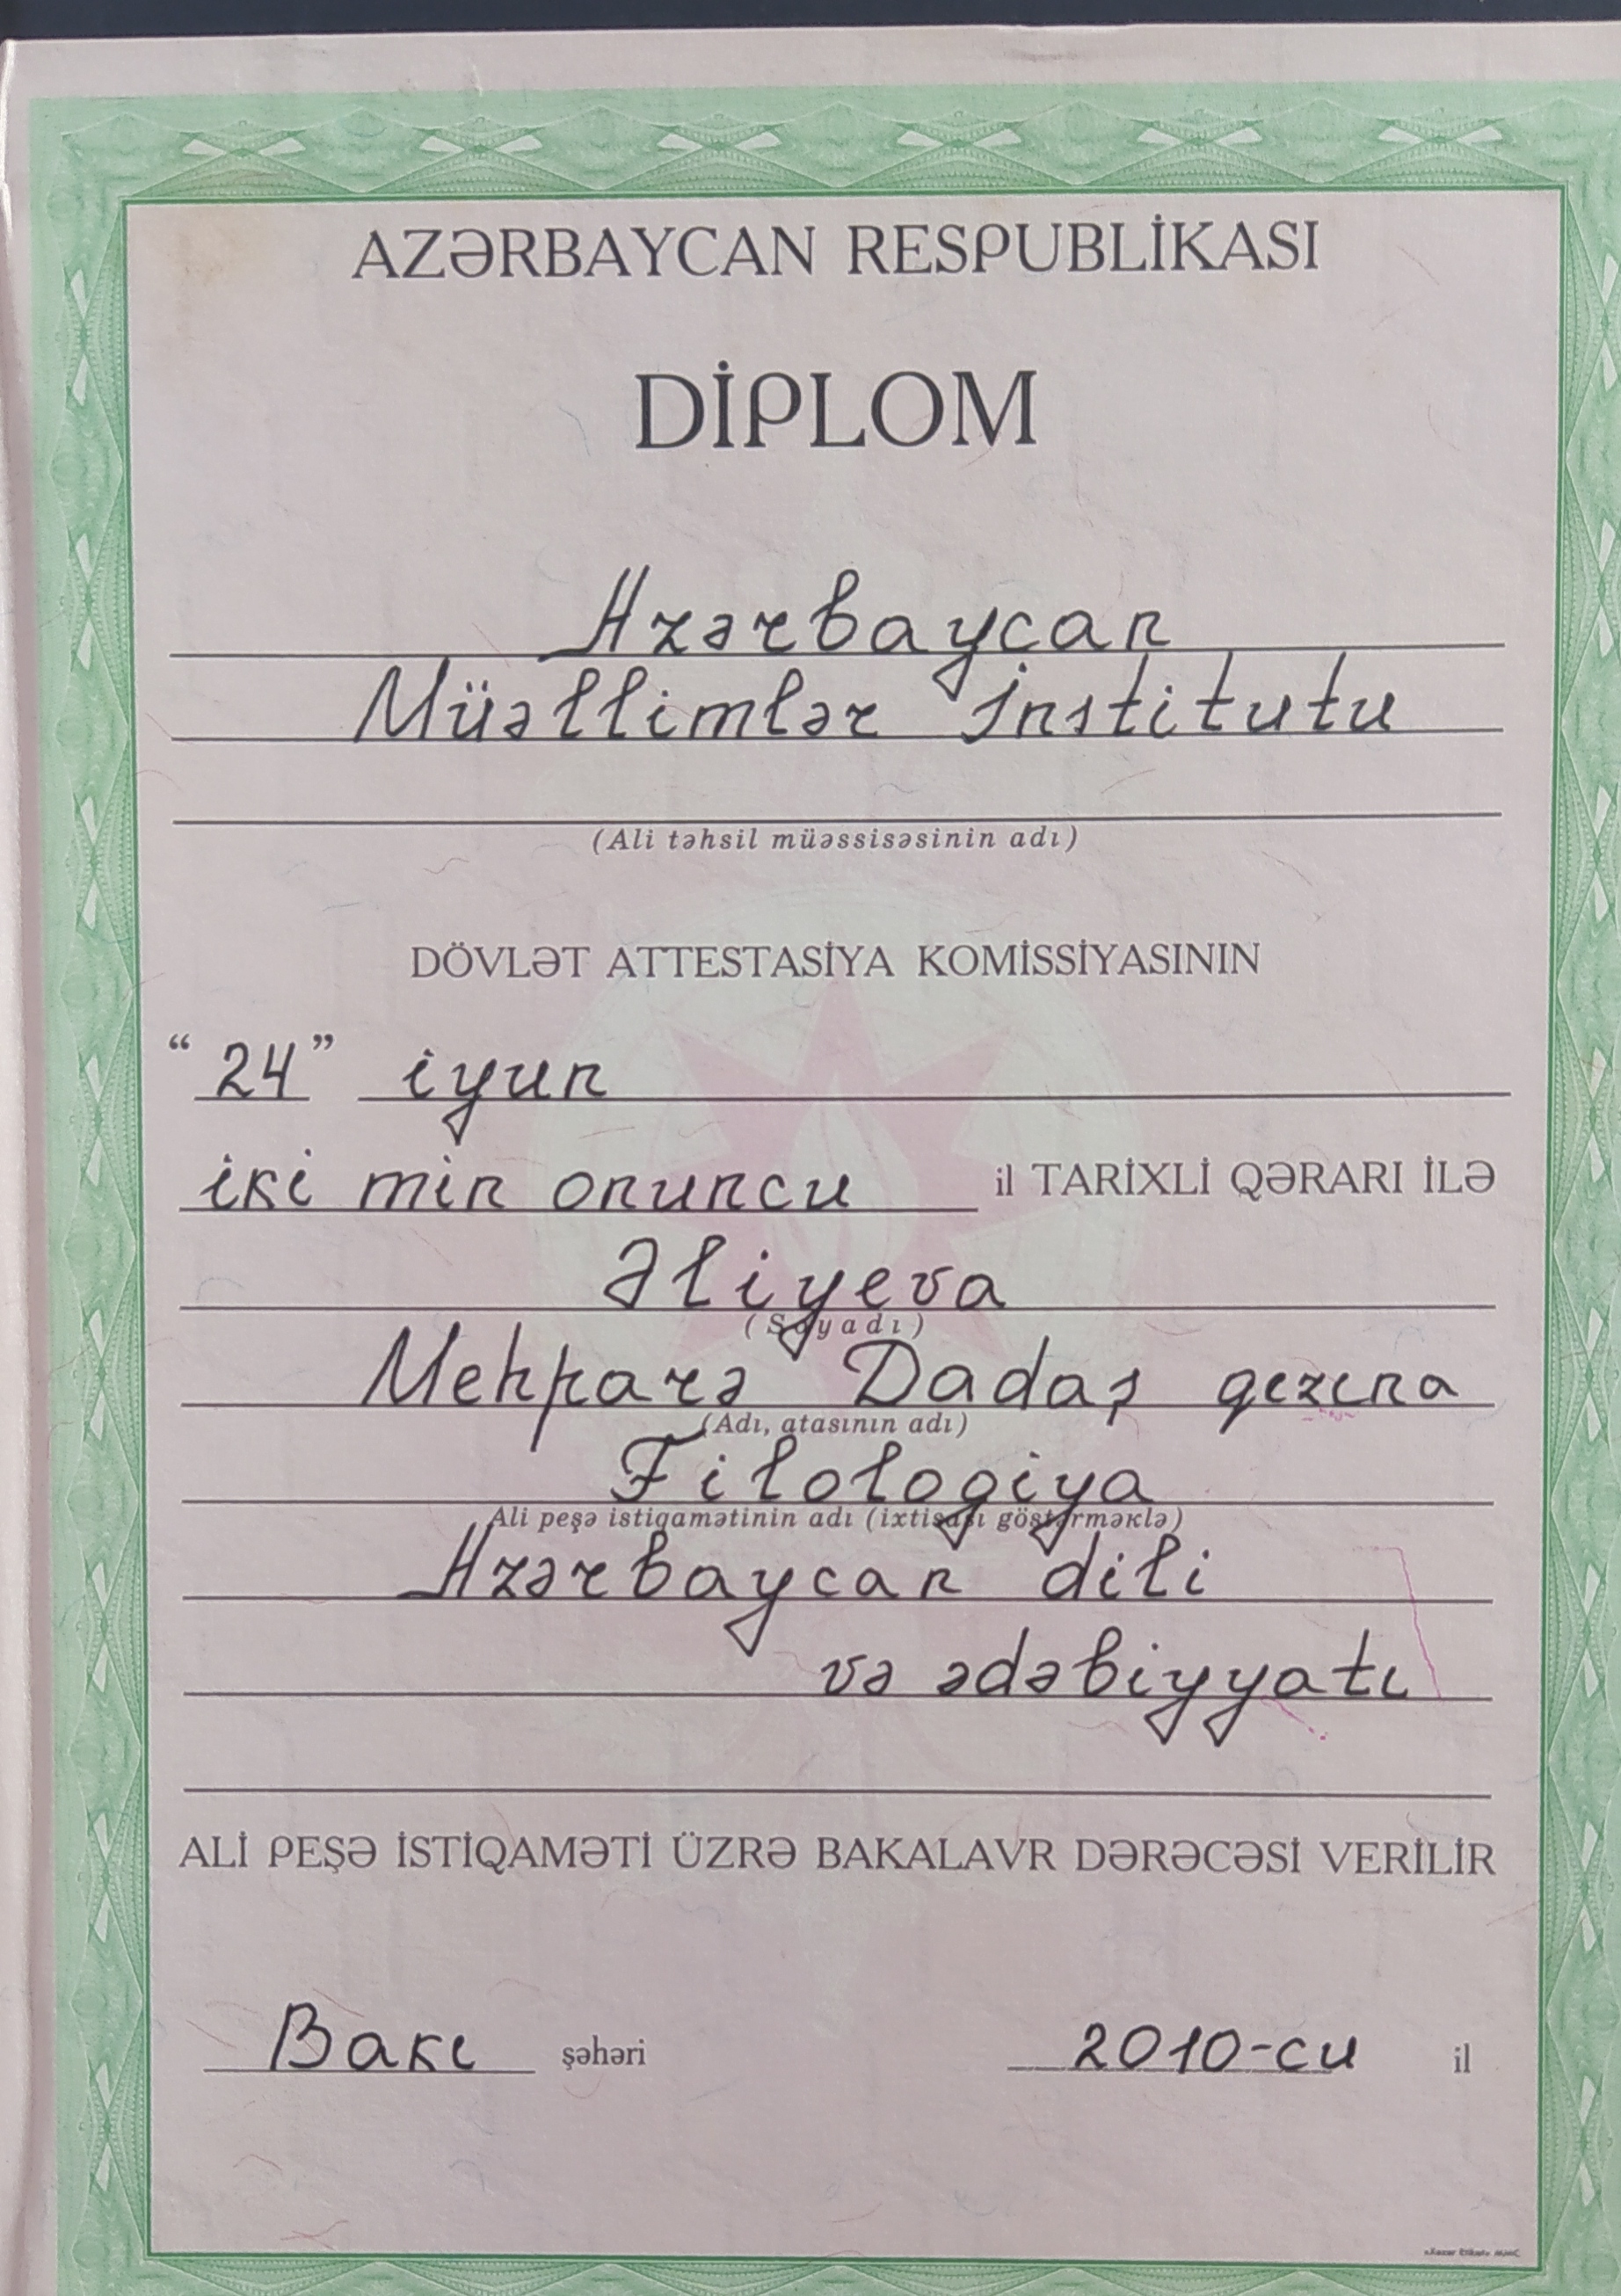 AZƏRBAYCAN RESPUBLİKASI
DİPLOM
Azərbaycan
Müəllimlər İnstitutu
(Ali təhsil müəssisəsinin adı)
DÖVLƏT ATTESTASİYA KOMİSSİYASININ
“24” iyun
iki min onuncu il TARİXLİ QƏRARI İLƏ
Əliyeva
(Soyadı)
Mehparə Dadaş qızına
(Adı, atasının adı)
Filologiya
Ali peşə istiqamətinin adı (ixtisası göstərməklə)
Azərbaycan dili
və ədəbiyyatı
ALİ PEŞƏ İSTİQAMƏTİ ÜZRƏ BAKALAVR DƏRƏCƏSİ VERİLİR
Bakı şəhəri 2010-cu il